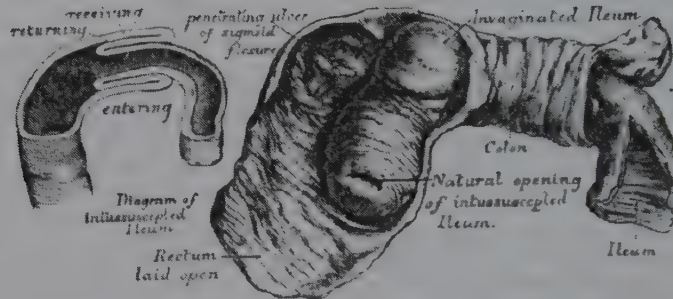 receiving
returning
entering
Diagram of
Intussuscepted
Ileum
penetrating ulcer
of sigmoid
flexure
Invaginated Ileum
Colon
Natural opening
of intussuscepted
Ileum.
Rectum
laid open
Ileum